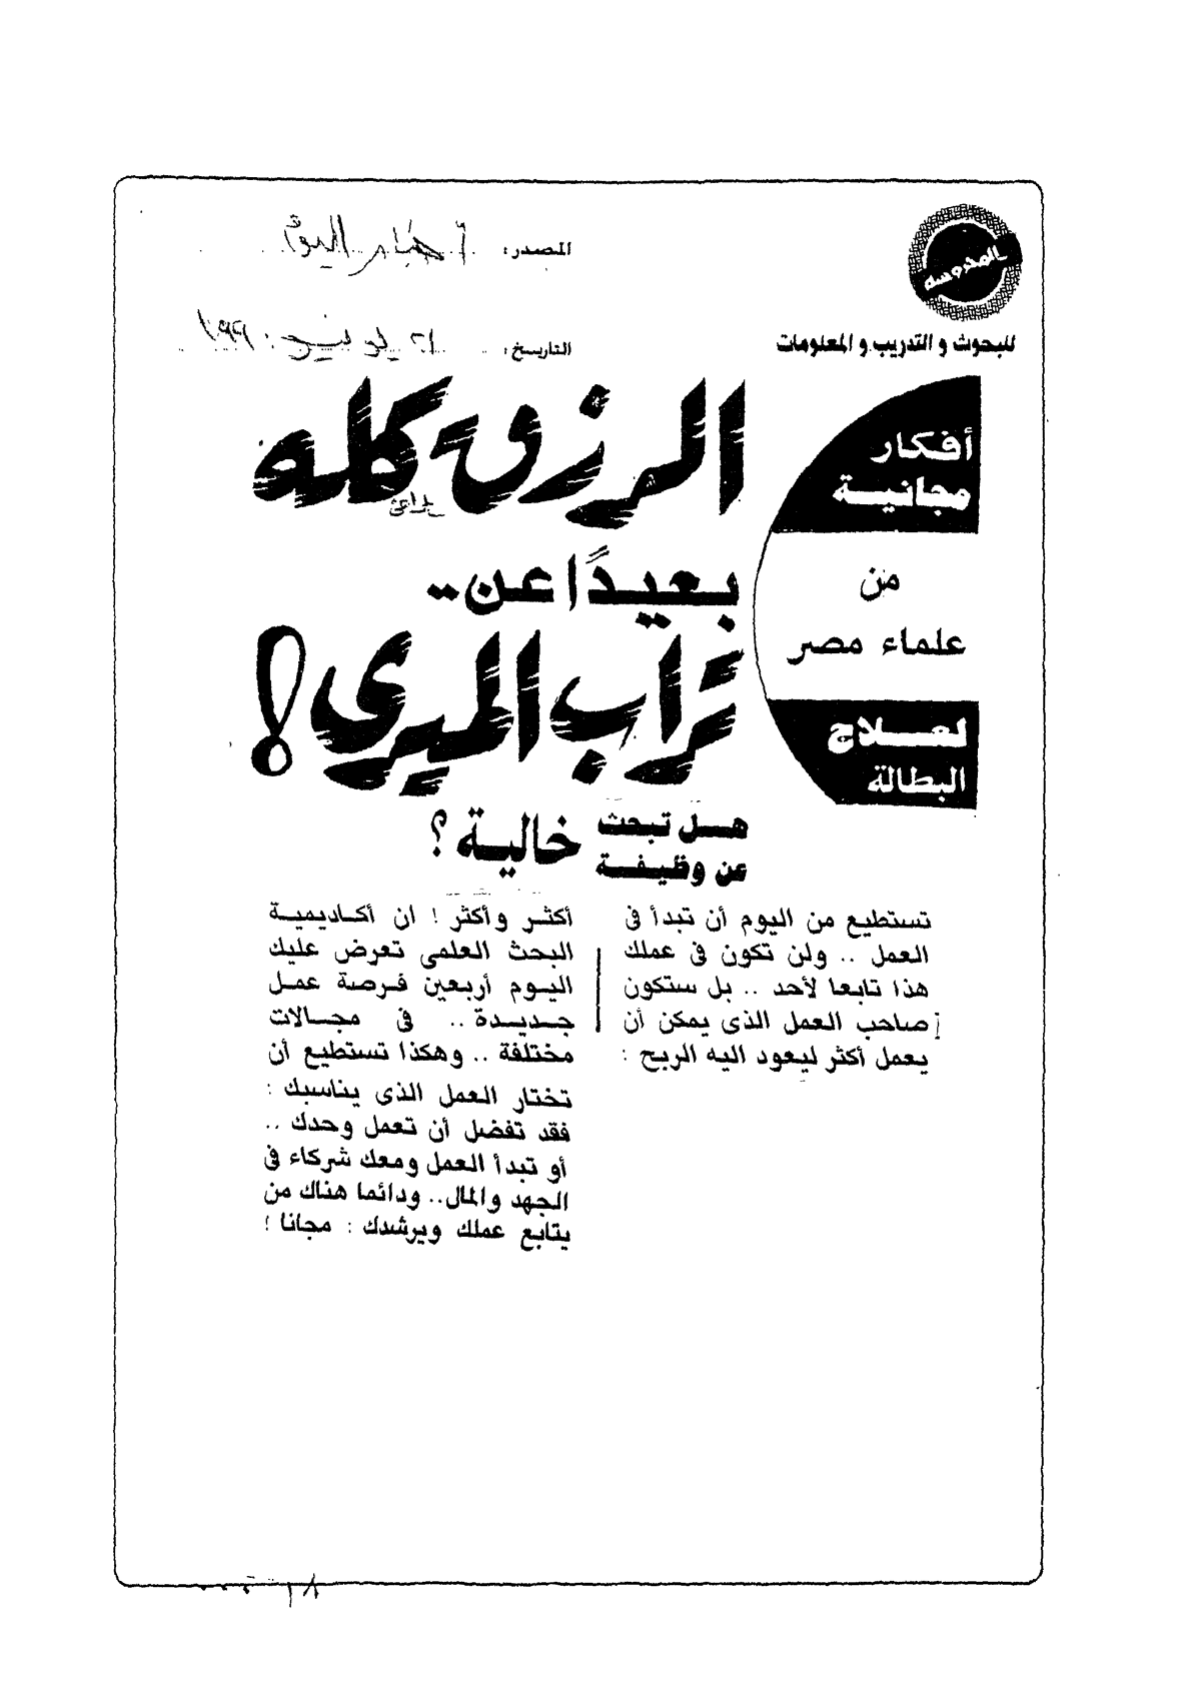 المحروسه
للبحوث و التدريب و المعلومات
المصدر: أخبار اليوم
التاريخ:
أفكار
مجانية
من
علماء مصر
لعلاج
البطالة
الرزق كله
بعيدًا عن ..
تراب الميري !
هل تبحث
عن وظيفة
خالية ؟
تستطيع من اليوم أن تبدأ فى
العمل .. ولن تكون فى عملك
هذا تابعا لأحد .. بل ستكون
صاحب العمل الذى يمكن أن
يعمل أكثر ليعود اليه الربح :
أكثر وأكثر ! ان أكاديمية
البحث العلمى تعرض عليك
اليوم أربعين فرصة عمل
جديدة .. فى مجالات
مختلفة .. وهكذا تستطيع أن
تختار العمل الذى يناسبك :
فقد تفضل أن تعمل وحدك ..
أو تبدأ العمل ومعك شركاء فى
الجهد والمال .. ودائما هناك من
يتابع عملك ويرشدك : مجانا !